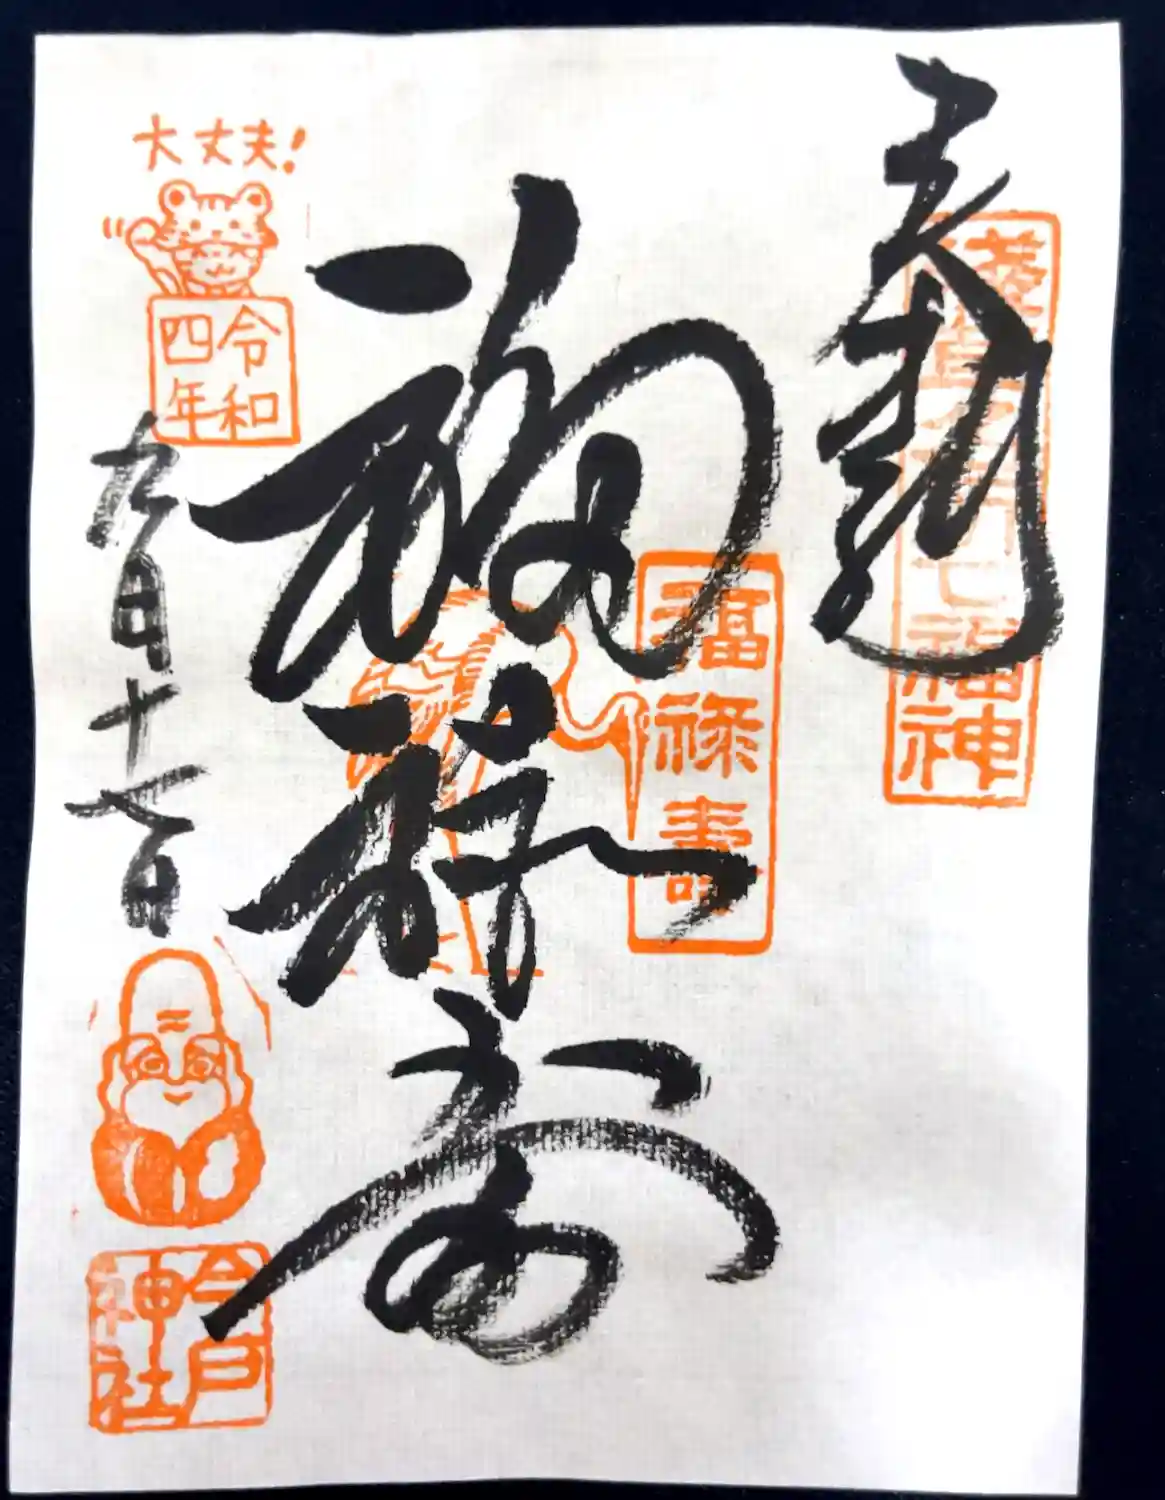 奉拝
淺草名所七福神
福禄寿
福禄壽
大丈夫!
令和
四年
九月十七日
今戸
神社